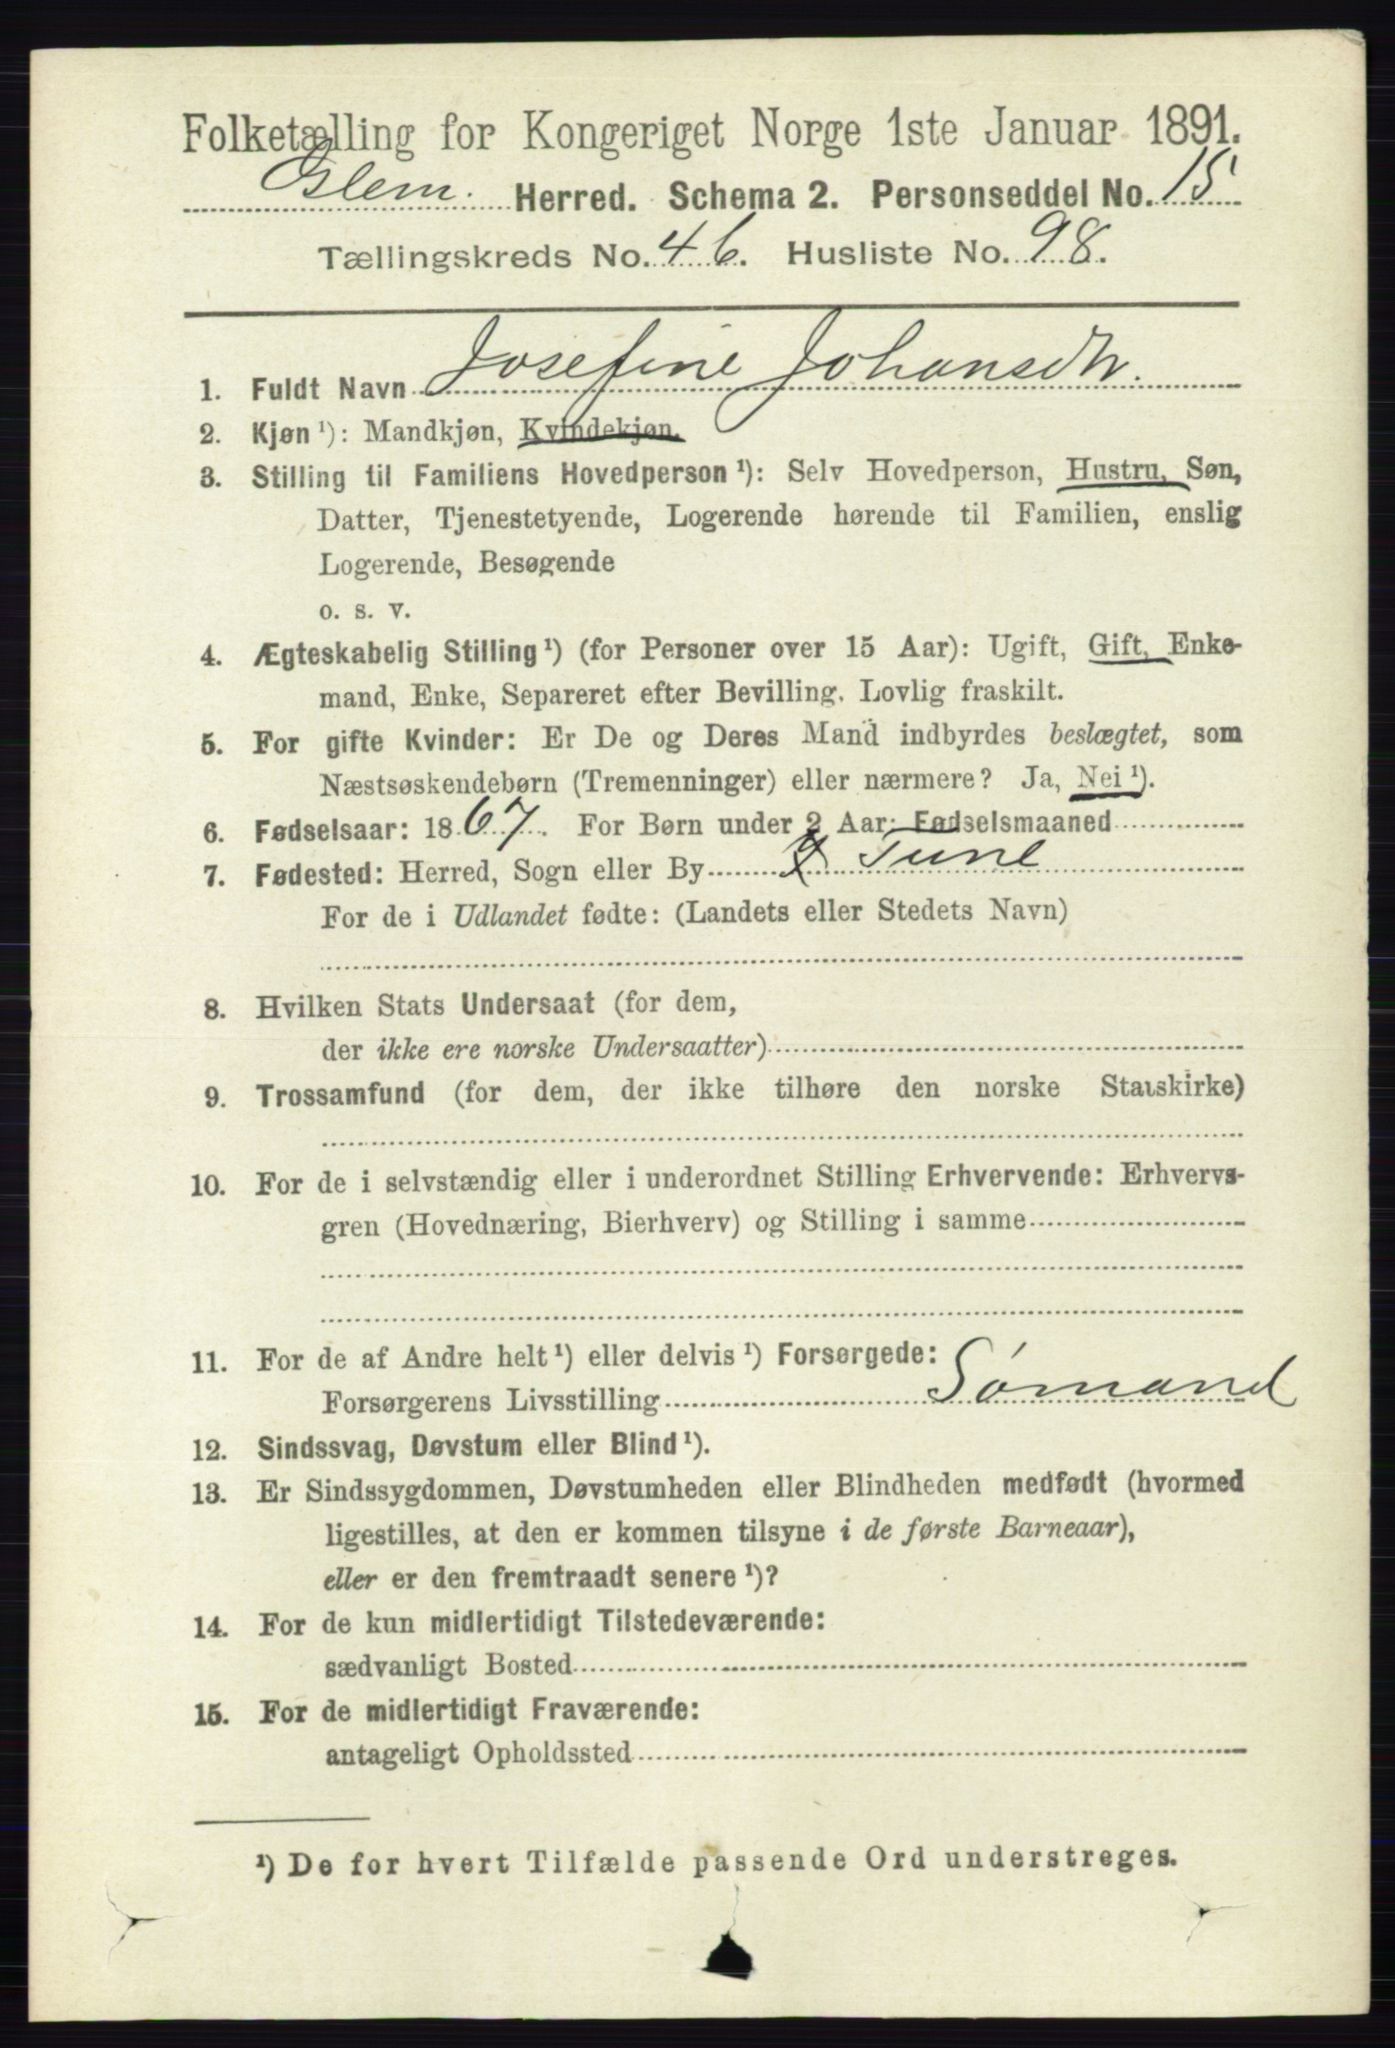 Folketælling for Kongeriget Norge 1ste Januar 1891.
Glem. Herred. Schema 2. Personseddel No. 15
Tællingskreds No. 46. Husliste No. 98.
1. Fuldt Navn Josefine Johansdtr.
2. Kjøn ¹): Mandkjøn, Kvindekjøn.
3. Stilling til Familiens Hovedperson ¹): Selv Hovedperson, Hustru, Søn,
Datter, Tjenestetyende, Logerende hørende til Familien, enslig
Logerende, Besøgende
o. s. v.
4. Ægteskabelig Stilling ¹) (for Personer over 15 Aar): Ugift, Gift, Enke-
mand, Enke, Separeret efter Bevilling. Lovlig fraskilt.
5. For gifte Kvinder: Er De og Deres Mand indbyrdes beslægtet, som
Næstsøskendebørn (Tremenninger) eller nærmere? Ja, Nei ¹).
6. Fødselsaar: 1867. For Børn under 2 Aar: Fødselsmaaned
7. Fødested: Herred, Sogn eller By Tune
For de i Udlandet fødte: (Landets eller Stedets Navn)
8. Hvilken Stats Undersaat (for dem,
der ikke ere norske Undersaatter)
9. Trossamfund (for dem, der ikke tilhøre den norske Statskirke)
10. For de i selvstændig eller i underordnet Stilling Erhvervende: Erhvervs-
gren (Hovednæring, Bierhverv) og Stilling i samme
11. For de af Andre helt ¹) eller delvis ¹) Forsørgede:
Forsørgerens Livsstilling Sömand
12. Sindssvag, Døvstum eller Blind ¹).
13. Er Sindssygdommen, Døvstumheden eller Blindheden medfødt (hvormed
ligestilles, at den er kommen tilsyne i de første Barneaar),
eller er den fremtraadt senere ¹)?
14. For de kun midlertidigt Tilstedeværende:
sædvanligt Bosted
15. For de midlertidigt Fraværende:
antageligt Opholdssted
¹) De for hvert Tilfælde passende Ord understreges.